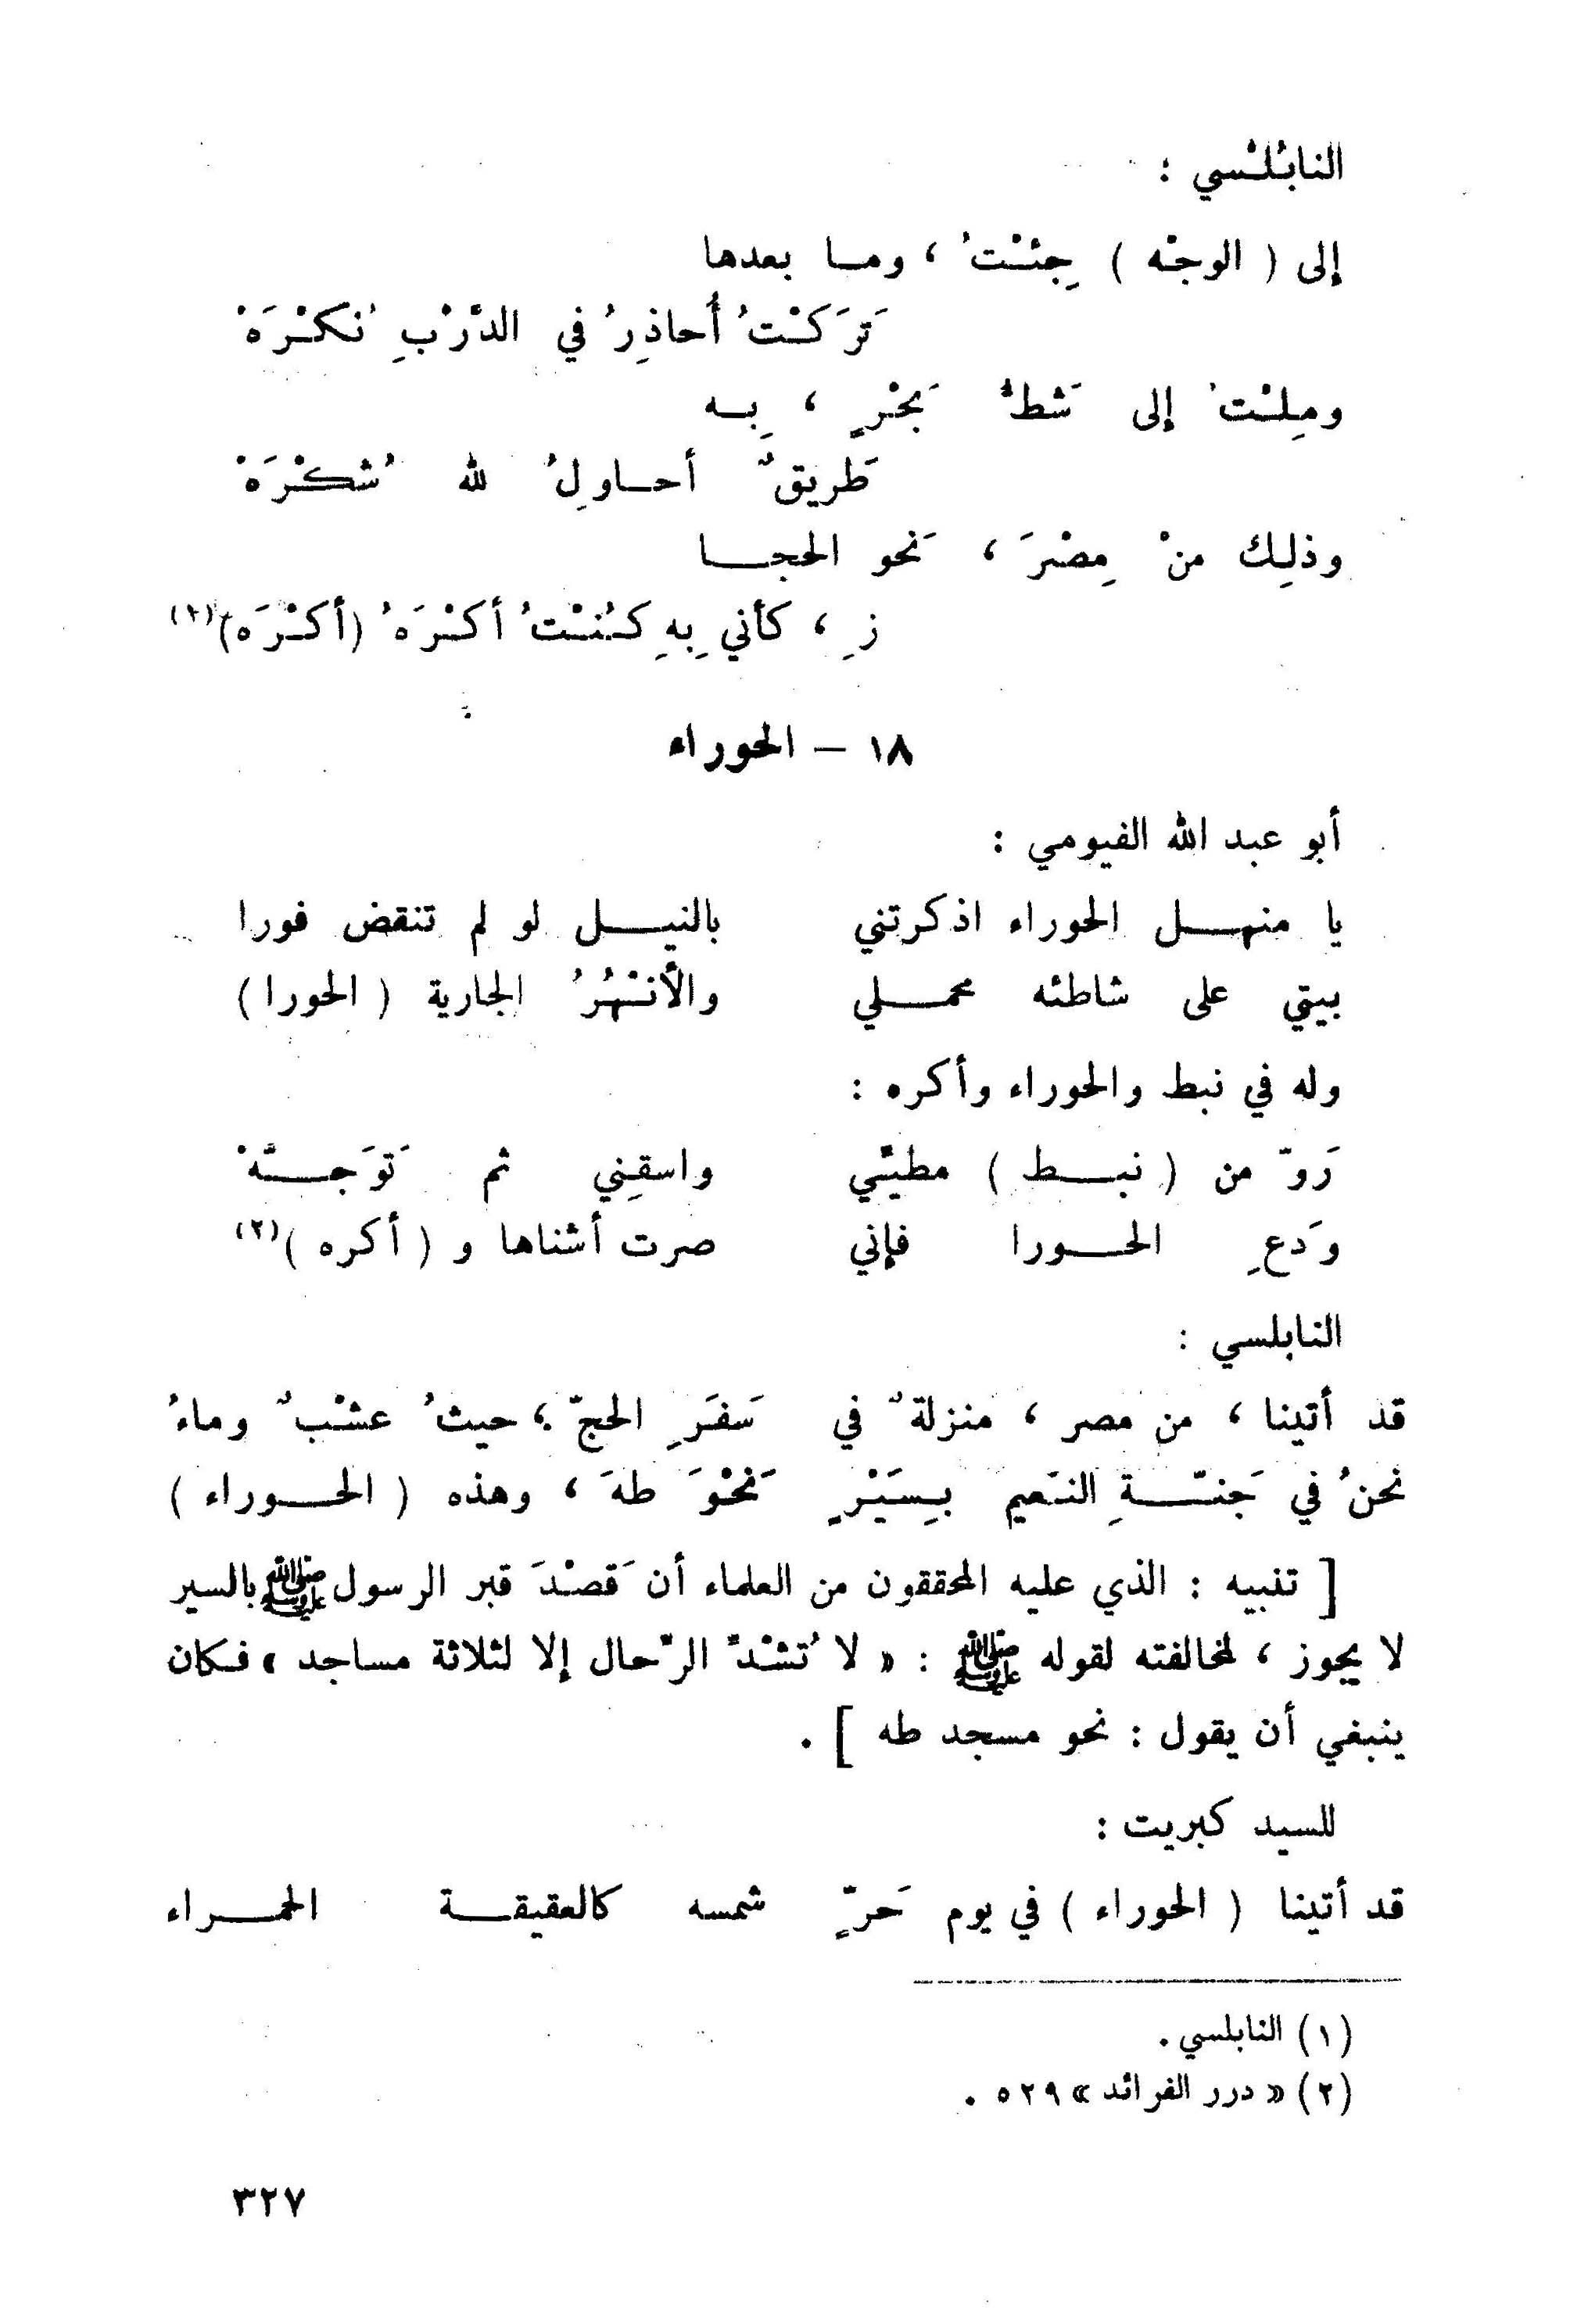 النابُلْسي :
إلى ( الوجْه ) جِئْتُ ، وما بعدها
تَرَكْتُ أُحاذِرُ في الدَّرْبِ نُكْرَهْ
ومِلْتُ إلى شَطِّ بَحْرٍ ، بِه
طَريقٌ أحاوِلُ لله شُكْرَهْ
وذلِك منْ مِصْرَ ، نَحو الحجا
زِ ، كأني بِهِ كُنْتُ أكْرَهُ (أكْرَه)(١)
١٨ – الحوراء
أبو عبد الله الفيومي :
يا منهل الحوراء اذكرتني بالنيل لو لم تنقض فورا
بيتي على شاطئه محملي والأنْهُرُ الجارية ( الحورا )
وله في نبط والحوراء وأكره :
رَوِّ من ( نبط ) مطيّي واسقِني ثم تَوَجَّهْ
وَدعِ الحورا فإني صرت أشناها و ( أكره )(٢)
النابلسي :
قد أتينا ، من مصر ، منزلةٌ في سَفَرِ الحجّ ؛ حيثُ عشْبٌ وماءُ
نحنُ في جَنّةِ النّعيم بِسَيْرٍ نَحْوَ طهَ ، وهذه ( الحوراء )
[ تنبيه : الذي عليه المحققون من العلماء أن قَصْدَ قبر الرسول ﷺ بالسير
لا يجوز ، لمخالفته لقوله ﷺ : « لا تُشْدّ الرّحال إلا لثلاثة مساجد » فكان
ينبغي أن يقول : نحو مسجد طه ] .
للسيد كبريت :
قد أتينا ( الحوراء ) في يوم حَرٍّ شمسه كالعقيقة الحمراء
(١) النابلسي .
(٢) « درر الفرائد » ٥٢٩ .
٣٢٧